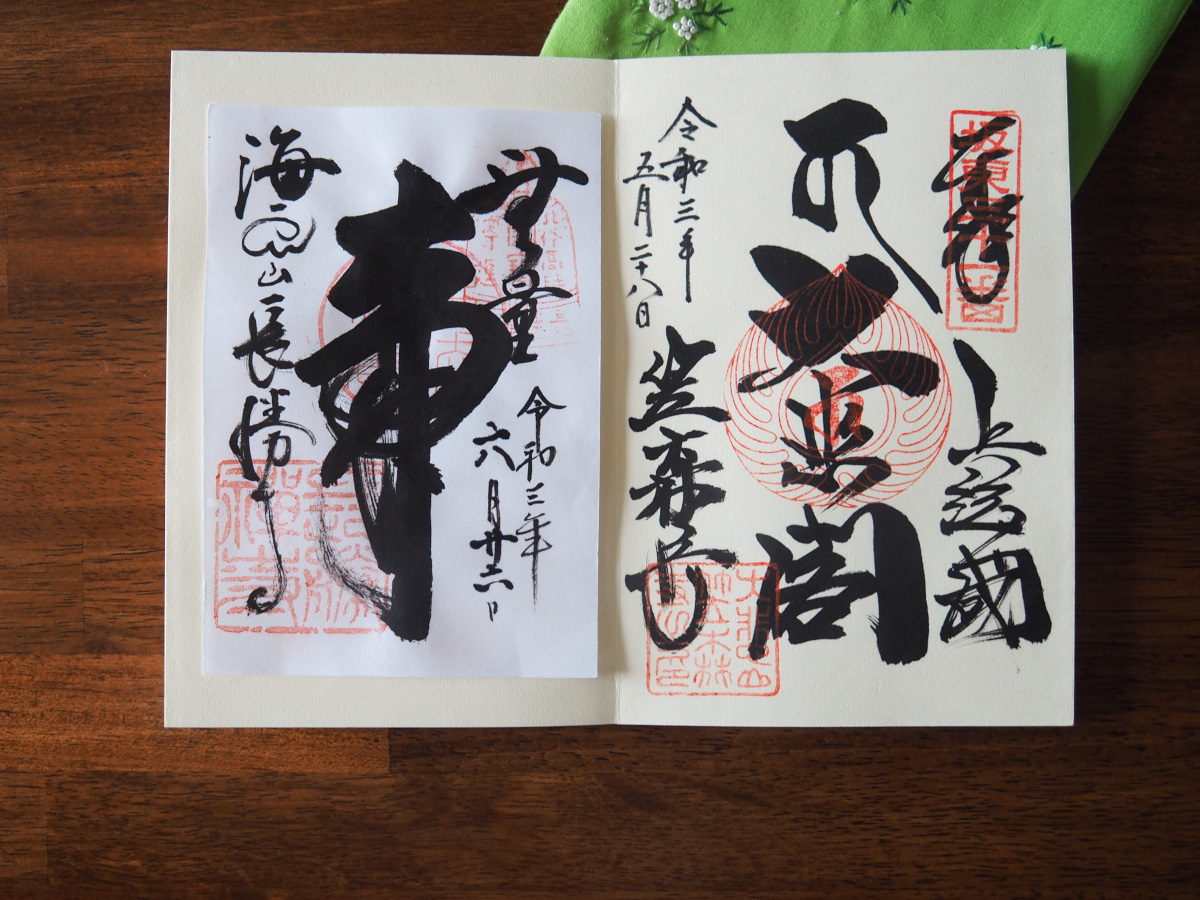 坂東三十一番
奉拝
上総国
大悲閣
令和三年
五月二十八日
笠森寺
無量
寿
令和三年
六月廿六日
海雲山長勝寺